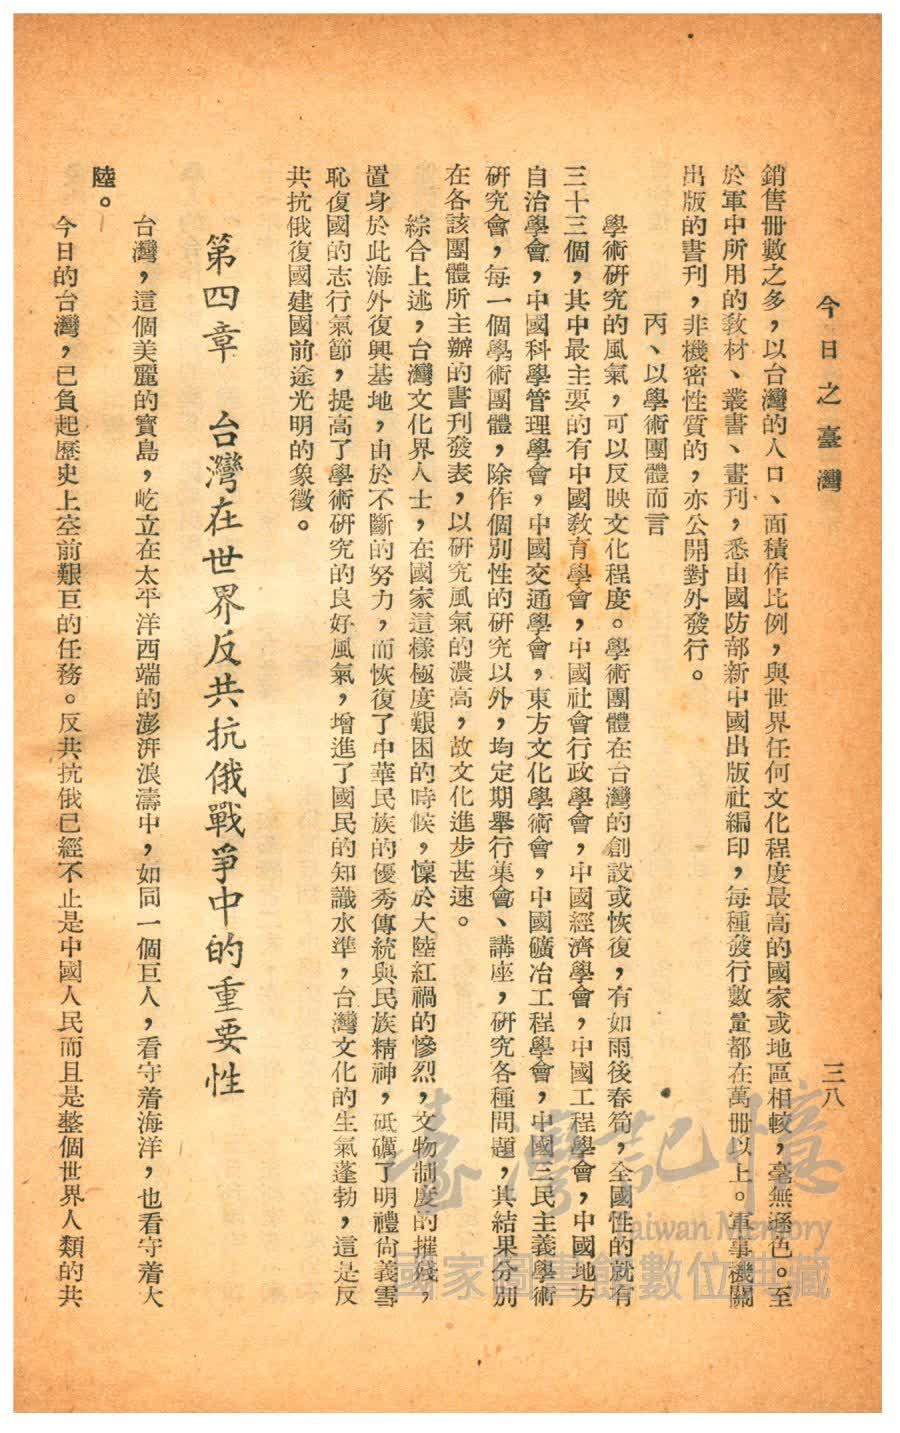 今日之臺灣
三八
銷售册數之多，以台灣的人口、面積作比例，與世界任何文化程度最高的國家或地區相較，毫無遜色。至
於軍中所用的敎材、叢書、畫刊，悉由國防部新中國出版社編印，每種發行數量都在萬册以上。軍事機關
出版的書刊，非機密性質的，亦公開對外發行。
丙、以學術團體而言
學術硏究的風氣，可以反映文化程度。學術團體在台灣的創設或恢復，有如雨後春筍，全國性的就有
三十三個，其中最主要的有中國敎育學會，中國社會行政學會，中國經濟學會，中國工程學會，中國地方
自治學會，中國科學管理學會，中國交通學會，東方文化學術會，中國礦冶工程學會，中國三民主義學術
硏究會，每一個學術團體，除作個別性的硏究以外，均定期舉行集會、講座，硏究各種問題，其結果分別
在各該團體所主辦的書刊發表，以硏究風氣的濃高，故文化進步甚速。
綜合上述，台灣文化界人士，在國家這樣極度艱困的時候，懍於大陸紅禍的慘烈，文物制度的摧殘，
置身於此海外復興基地，由於不斷的努力，而恢復了中華民族的優秀傳統與民族精神，砥礪了明禮尙義雪
恥復國的志行氣節，提高了學術硏究的良好風氣，增進了國民的知識水準，台灣文化的生氣蓬勃，這是反
共抗俄復國建國前途光明的象徵。
第四章　台灣在世界反共抗俄戰爭中的重要性
台灣，這個美麗的寶島，屹立在太平洋西端的澎湃浪濤中，如同一個巨人，看守着海洋，也看守着大
陸。
今日的台灣，已負起歷史上空前艱巨的任務。反共抗俄已經不止是中國人民而且是整個世界人類的共
臺灣記憶
Taiwan Memory
國家圖書館數位典藏